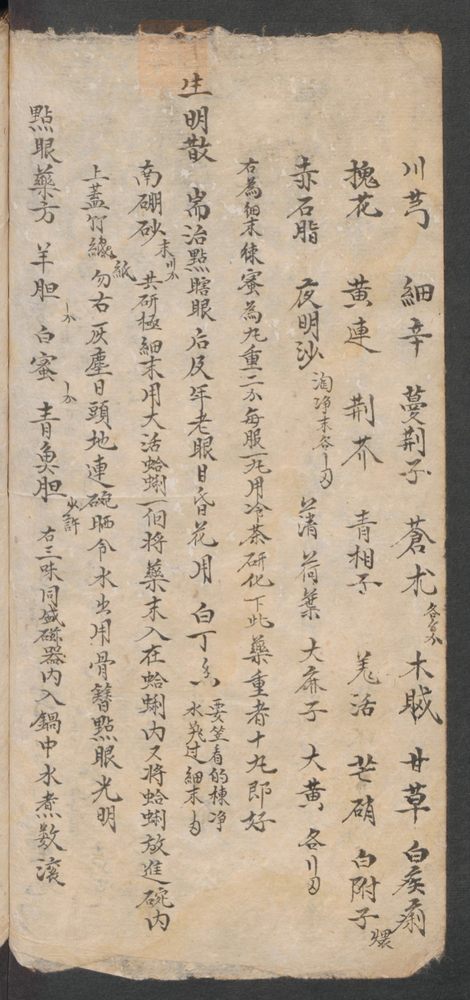 川芎 細辛 蔓荆子 蒼朮 木賊 甘草 白疾藜
槐花 黄連 荆芥 青相子 羌活 芒硝 白附子煨
赤石脂 夜明沙淘净末各 荷葉 大麻子 大黄 各
右為細末煉蜜為丸重二分每服一丸用冷茶研化下此藥重者十丸即好
生明散 耑治點瞎眼后及年老眼目昏花用 白丁 要竖看的揀净水飛过細末
南硼砂末 共研極細末用大活蛤蜊一個將藥末入在蛤蜊内又將蛤蜊放進碗内
上蓋 紙勿右灰塵日頭地連碗晒令水出用骨簪點眼光明
點眼藥方 羊胆 白蜜 青魚胆少許 右三味同盛磁器内入鍋中水煮数滚